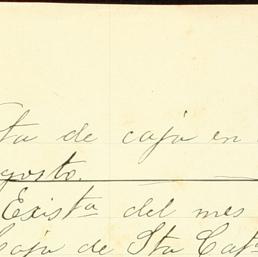 ta de caja en
gosto.
Exist.ª del mes
Caja de Sta Cat.ª